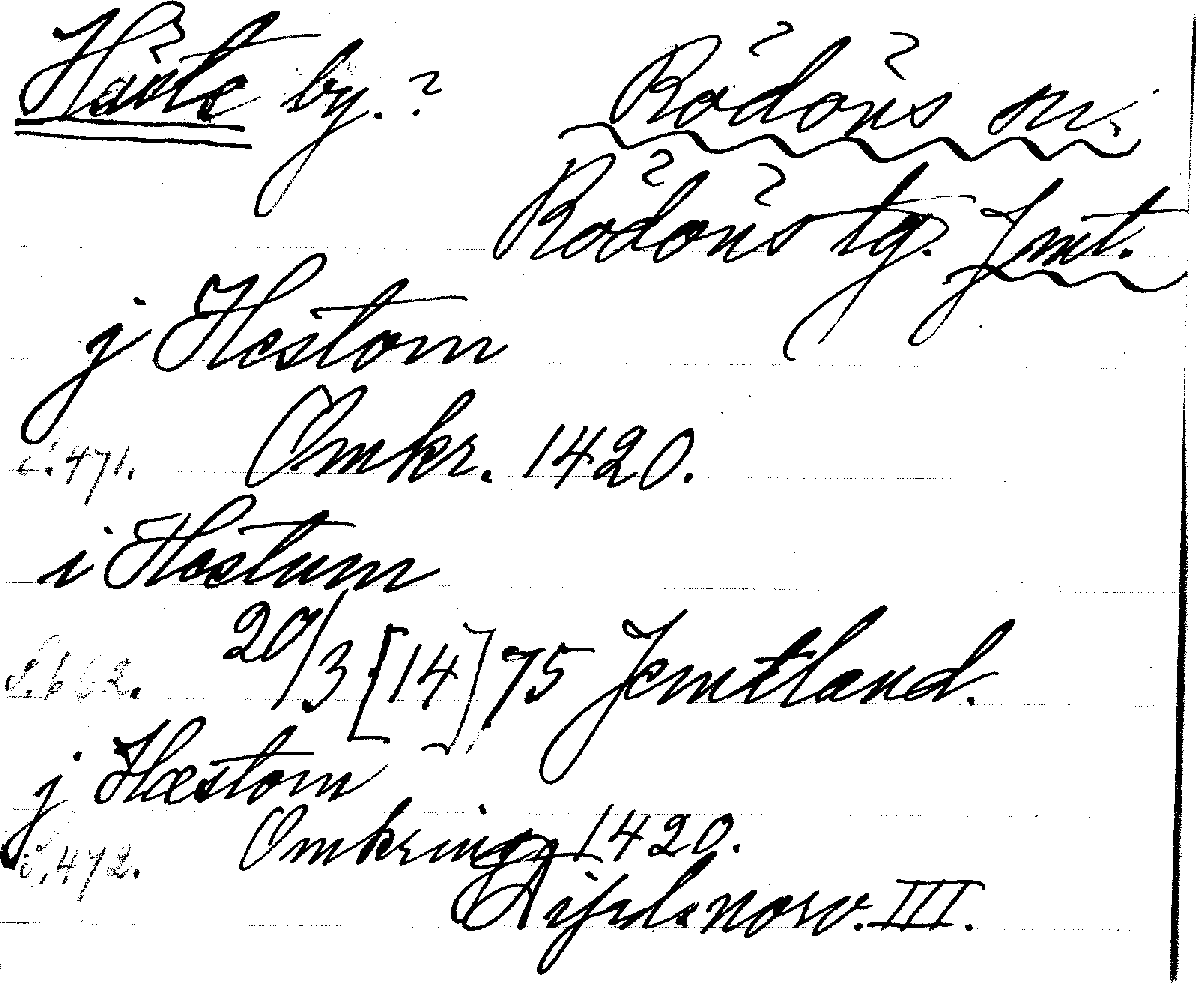 Häste by.?
Rödöns sn.
Rödöns tg. Jmt.
j Hæstom
S. 471. Omkr. 1420.
i Hæstum
S. 662. 20/3 [14]75 Jemtland.
j Hæstom
S. 472. Omkring 1420.
Dipl. norv. III.